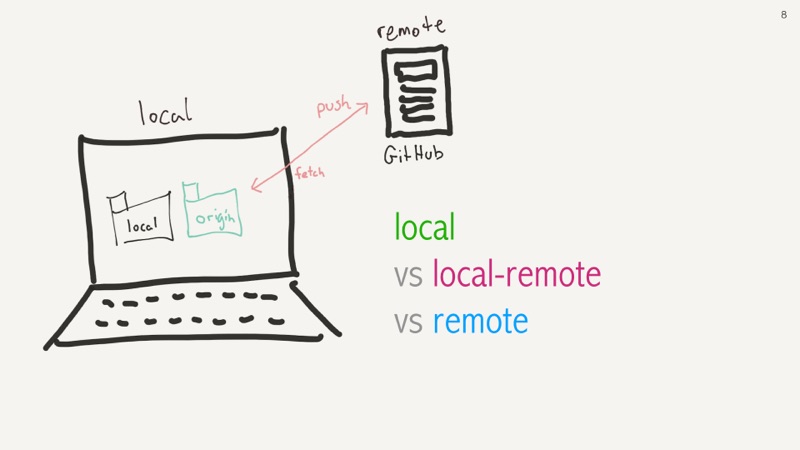 8
remote
local
push
GitHub
fetch
local
origin
local
vs local-remote
vs remote